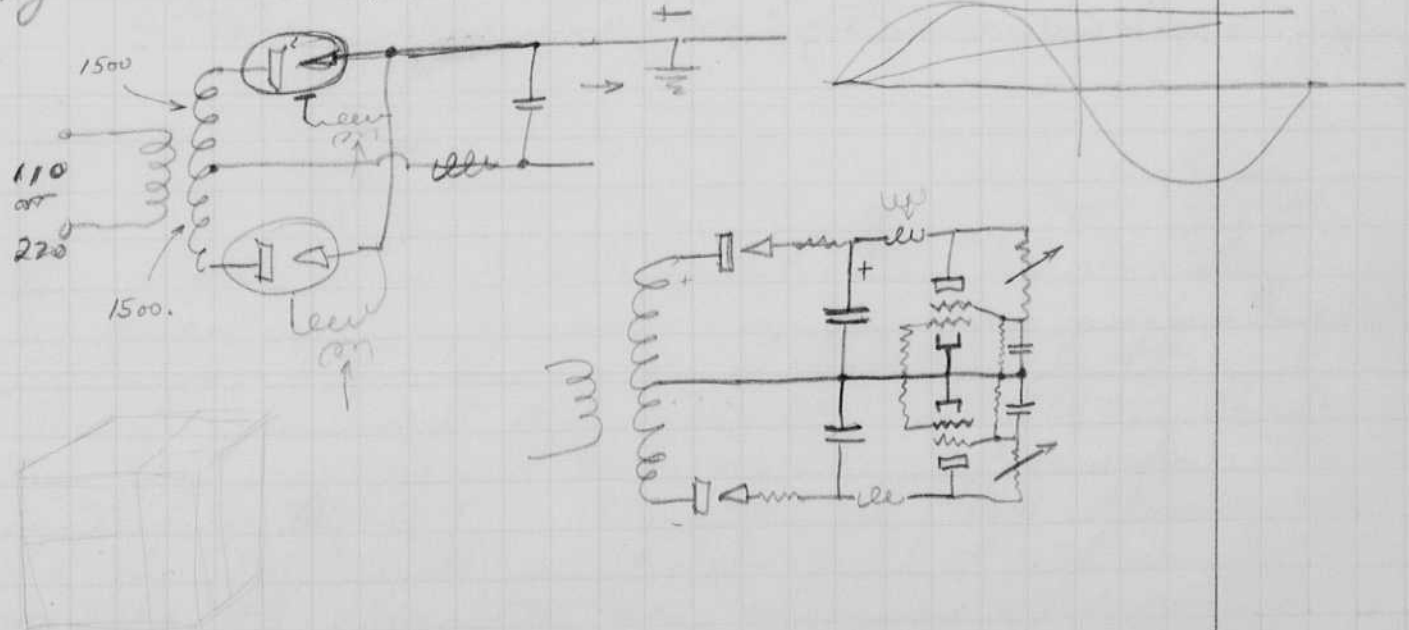 1500
110
or
220
1500.
+
+
+
-